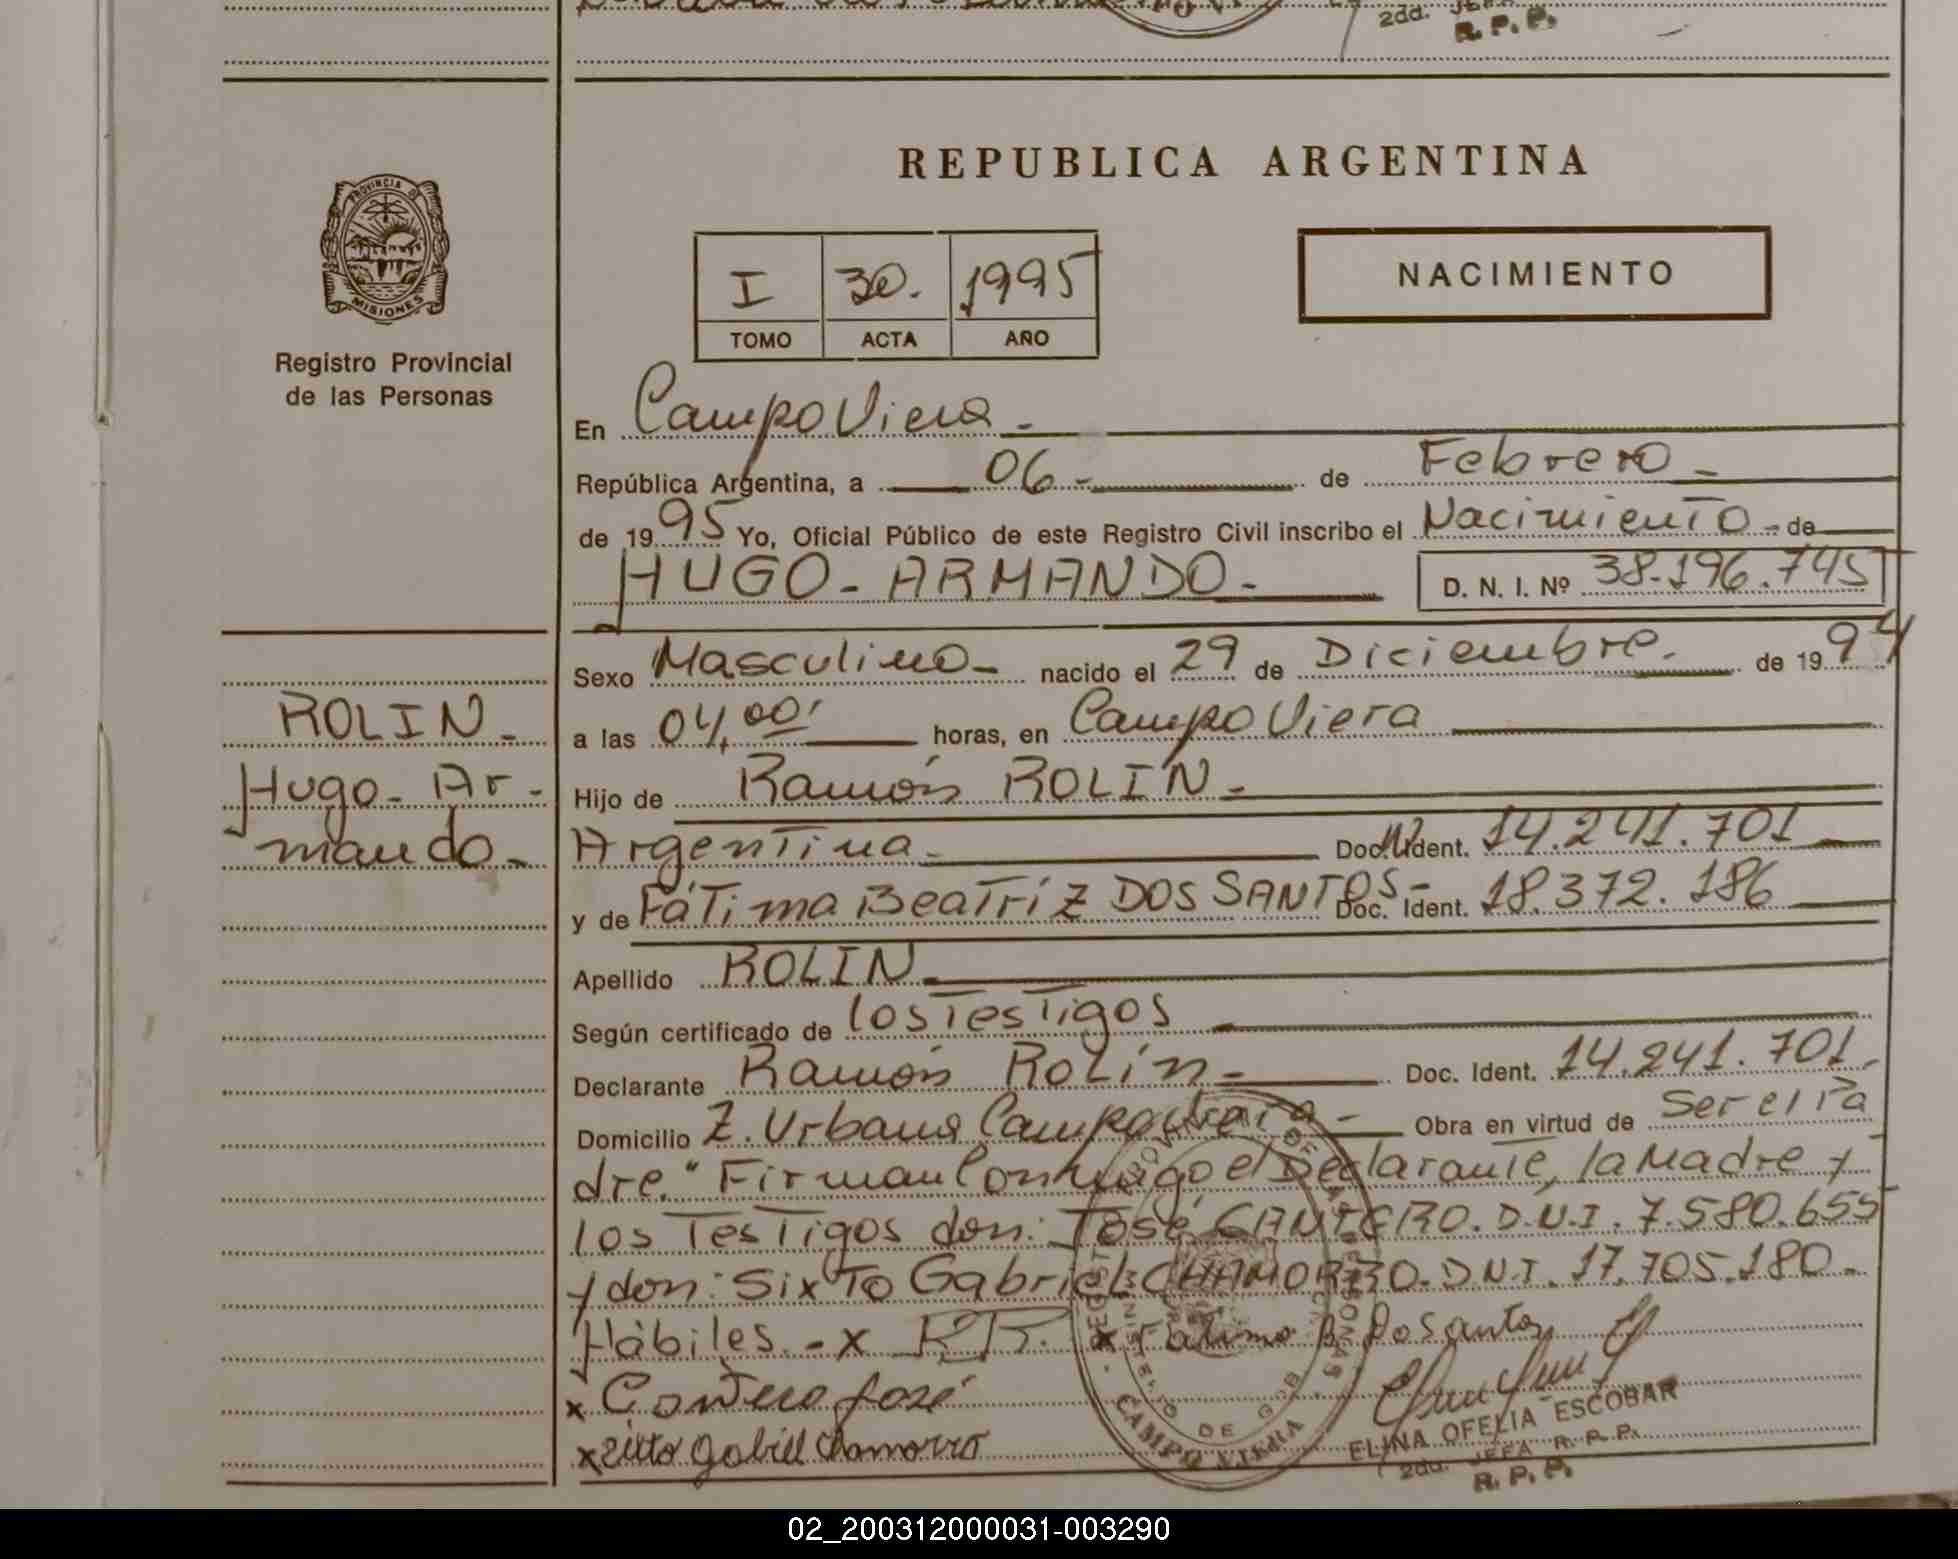 2da. JEFA
R. P. P.
PROVINCIA DE
MISIONES
Registro Provincial
de las Personas
REPUBLICA ARGENTINA
I 30. 1995
TOMO ACTA AÑO
NACIMIENTO
En Campo Viera -
República Argentina, a 06 - de Febrero -
de 1995 Yo, Oficial Público de este Registro Civil inscribo el Nacimiento - de
HUGO - ARMANDO - D. N. I. Nº 38.196.745
Sexo Masculino - nacido el 29 de Diciembre. de 1994
a las 04,00' horas, en Campo Viera
Hijo de Ramón ROLIN -
Argentina - Doc. Ident. 14.241.701
y de Fátima Beatríz DOS SANTOS - Doc. Ident. 18.372.186
Apellido ROLIN -
Según certificado de los Testigos
Declarante Ramón Rolín - Doc. Ident. 14.241.701.
Domicilio Z. Urbana Campo Viera - Obra en virtud de Ser el Pa
dre." Firman Conmigo el Declarante, la Madre y
los Testigos don: José CANTERO. D.N.I. 7.580.655
y don: Sixto Gabriel CHAMORRO. D.N.I. 17.705.180 -
Hábiles. - x R R. x Fatima B Dosantos
x Cantero José
x Sixto Gabriel Chamorro
ROLIN -
Hugo - Ar -
mando -
CAMPO VIERA
ELINA OFELIA ESCOBAR
2da. JEFA R. P. P.
R. P. P.
02_200312000031-003290